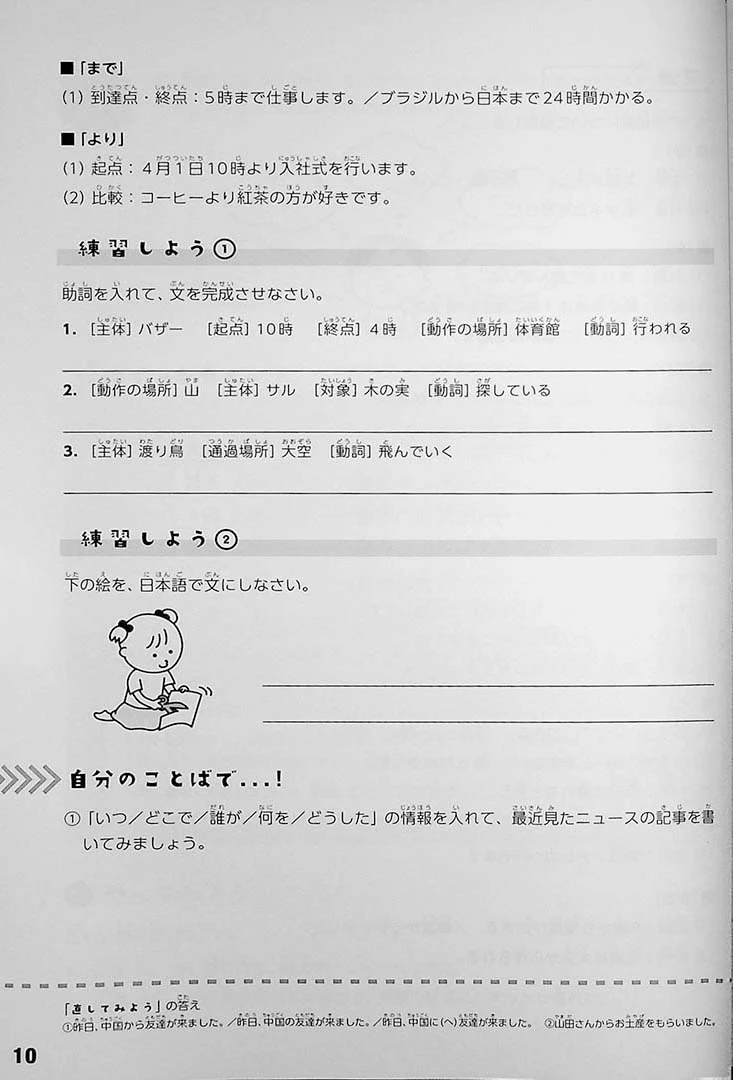 ■「まで」
(1) 到達点・終点：5時まで仕事します。／ブラジルから日本まで24時間かかる。
■「より」
(1) 起点：4月1日10時より入社式を行います。
(2) 比較：コーヒーより紅茶の方が好きです。
練習しよう①
助詞を入れて、文を完成させなさい。
1. [主体] バザー [起点] 10時 [終点] 4時 [動作の場所] 体育館 [動詞] 行われる
2. [動作の場所] 山 [主体] サル [対象] 木の実 [動詞] 探している
3. [主体] 渡り鳥 [通過場所] 大空 [動詞] 飛んでいく
練習しよう②
下の絵を、日本語で文にしなさい。
自分のことばで...!
①「いつ／どこで／誰が／何を／どうした」の情報を入れて、最近見たニュースの記事を書
いてみましょう。
「直してみよう」の答え
①昨日、中国から友達が来ました。／昨日、中国の友達が来ました。／昨日、中国に(へ)友達が来ました。 ②山田さんからお土産をもらいました。
10